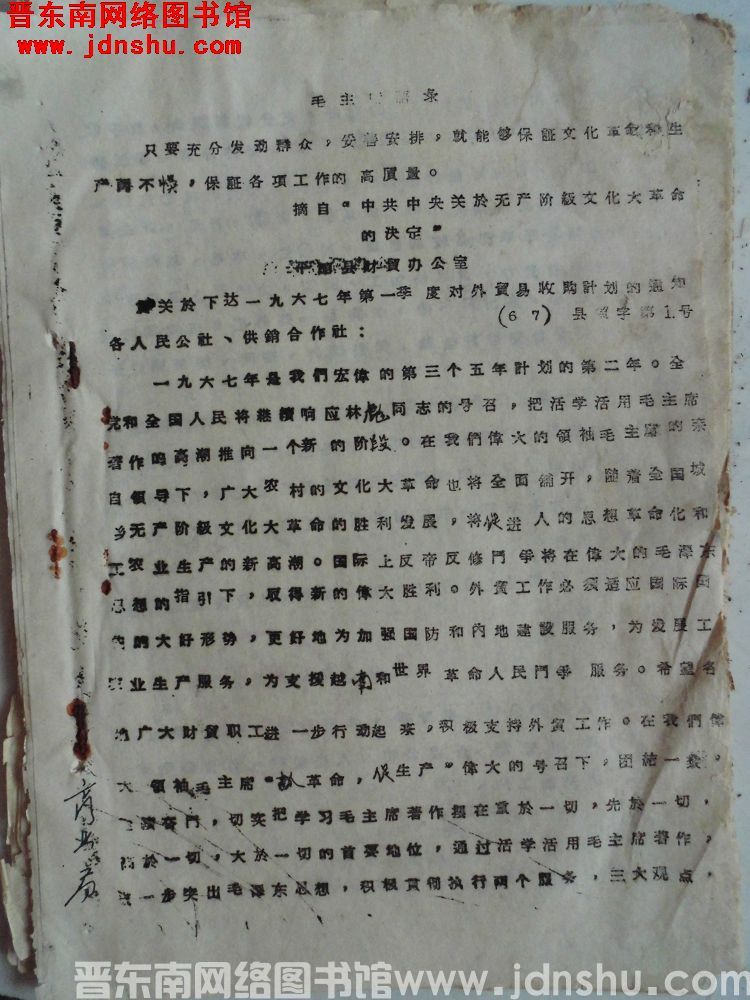 晋东南网络图书馆
www.jdnshu.com
毛主 录
只要充分发动群众，妥善安排，就能够保証文化革命和生
产两不悞，保証各項工作的高质量。
摘自“中共中央关於无产阶級文化大革命
的决定”
县财貿办公室
关於下达一九六七年第一季度对外貿易收购計划的通知
(67)县 字第1号
各人民公社、供銷合作社：
一九六七年是我們宏偉的第三个五年計划的第二年。全
党和全国人民将継續响应林彪同志的号召，把活学活用毛主席
著作的高潮推向一个新的阶段。在我們偉大的領袖毛主席的亲
自領导下，广大农村的文化大革命也将全面鋪开，随着全国城
乡无产阶級文化大革命的胜利发展，将促进人的思想革命化和
工农业生产的新高潮。国际上反帝反修鬥爭将在偉大的毛泽东
思想的指引下，取得新的偉大胜利。外貿工作必须适应国际国
内的大好形势，更好地为加强国防和內地建設服务，为发展工
农业生产服务，为支援越南和世界革命人民鬥爭服务。希望各
地广大财貿职工进一步行动起来，积极支持外貿工作。在我們偉
大領袖毛主席“抓革命，促生产”偉大的号召下，团結一致，
奋鬥，切实把学习毛主席著作摆在重於一切，先於一切，
高於一切，大於一切的首要地位，通过活学活用毛主席著作，
进一步突出毛泽东思想，积极貫彻执行两个服务，三大观点，
晋东南网络图书馆www.jdnshu.com